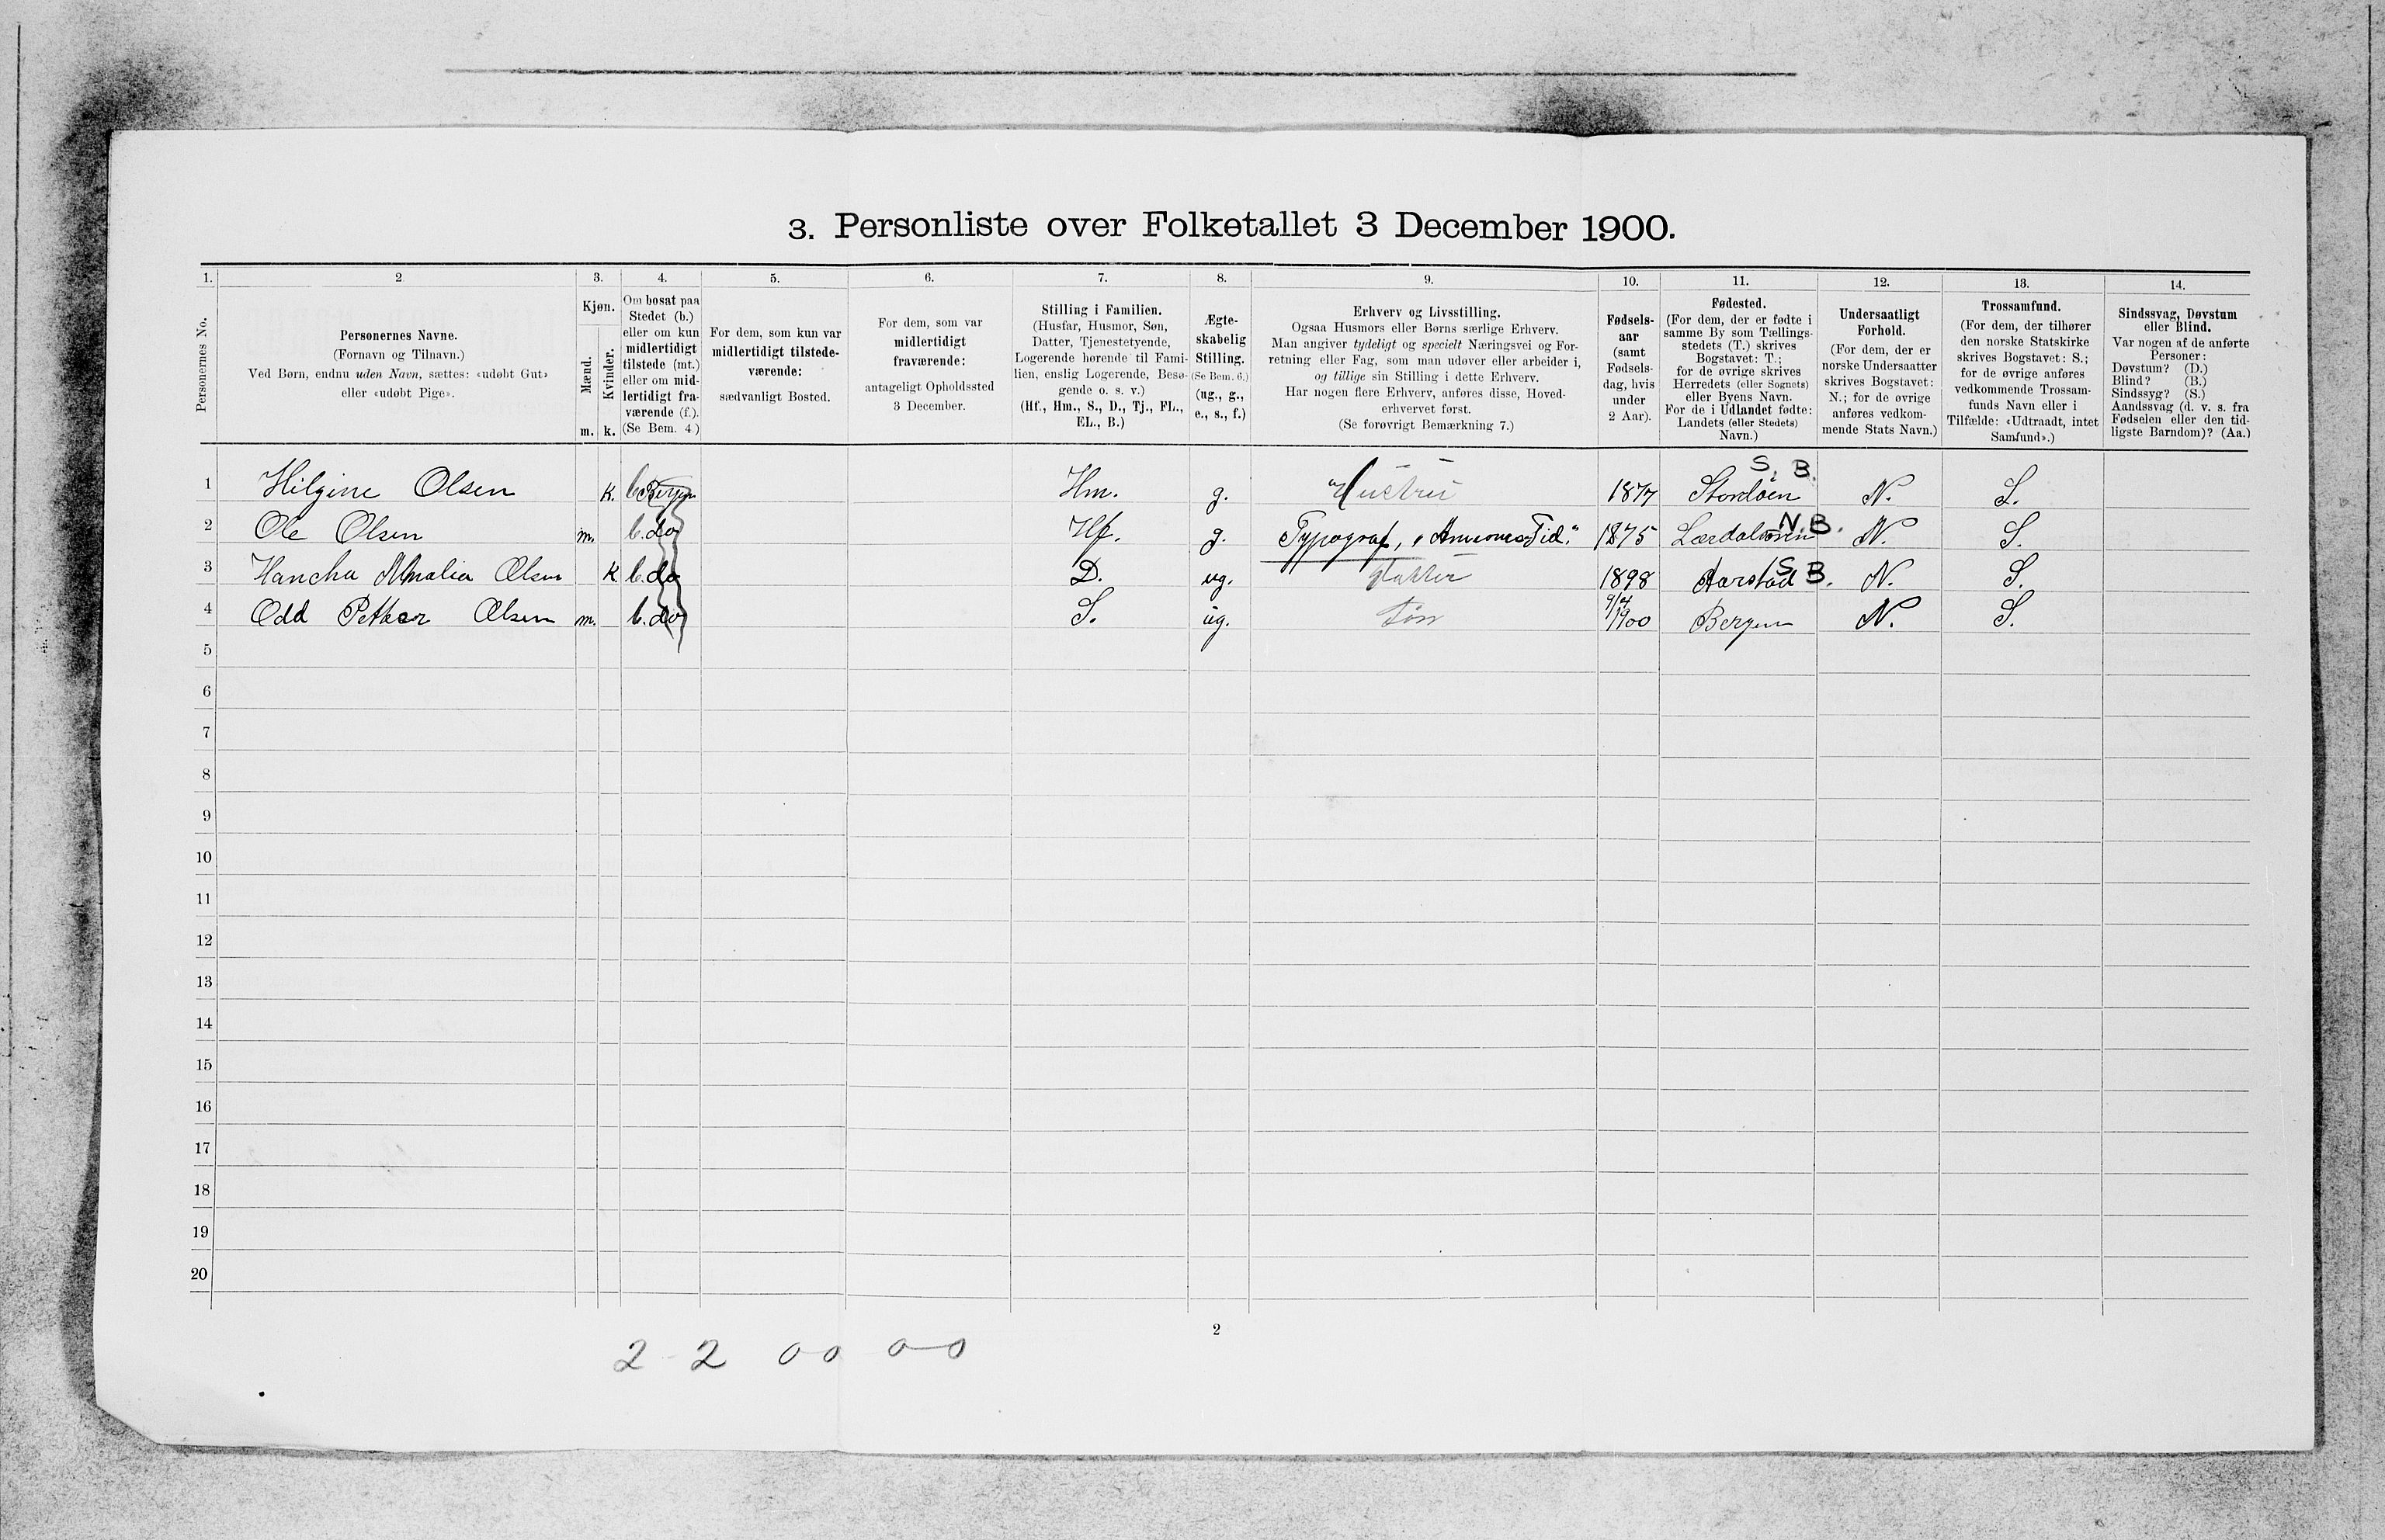 3. Personliste over Folketallet 3 December 1900.
1. 2 3. 4. 5. 6. 7. 8. 9. 10. 11. 12. 13. 14.
Personernes No.
Personernes Navne.
(Fornavn og Tilnavn.)
Ved Børn, endnu uden Navn, sættes: «udøbt Gut»
eller «udøbt Pige».
Kjøn.
Mænd.
Kvinder.
m. k.
Om bosat paa
Stedet (b.)
eller om kun
midlertidigt
tilstede (mt.)
eller om mid-
lertidigt fra-
værende (f.).
(Se Bem. 4.)
For dem, som kun var
midlertidigt tilstede-
værende:
sædvanligt Bosted.
For dem, som var
midlertidigt
fraværende:
antageligt Opholdssted
3 December.
Stilling i Familien.
(Husfar, Husmor, Søn,
Datter, Tjenestetyende,
Logerende hørende til Fami-
lien, enslig Logerende, Besø-
gende o. s. v.)
(Hf., Hm., S., D., Tj., FL.,
EL., B.)
Ægte-
skabelig
Stilling.
(Se Bem. 6.)
(ug., g.,
e., s., f.)
Erhverv og Livsstilling.
Ogsaa Husmors eller Børns særlige Erhverv.
Man angiver tydeligt og specielt Næringsvei og For-
retning eller Fag, som man udøver eller arbeider i,
og tillige sin Stilling i dette Erhverv.
Har nogen flere Erhverv, anføres disse, Hoved-
erhvervet først.
(Se forøvrigt Bemærkning 7.)
Fødsels-
aar
(samt
Fødsels-
dag, hvis
under
2 Aar).
Fødested.
(For dem, der er fødte i
samme By som Tællings-
stedets (T.) skrives
Bogstavet: T.;
for de øvrige skrives
Herredets (eller Sognets)
eller Byens Navn.
For de i Udlandet fødte:
Landets (eller Stedets)
Navn.)
Undersaatligt
Forhold.
(For dem, der er
norske Undersaatter
skrives Bogstavet:
N.; for de øvrige
anføres vedkom-
mende Stats Navn.)
Trossamfund.
(For dem, der tilhører
den norske Statskirke
skrives Bogstavet: S.;
for de øvrige anføres
vedkommende Trossam-
funds Navn eller i
Tilfælde: «Udtraadt, intet
Samfund».)
Sindssvag, Døvstum
eller Blind.
Var nogen af de anførte
Personer:
Døvstum? (D.)
Blind? (B.)
Sindssyg? (S.)
Aandssvag (d. v. s. fra
Fødselen eller den tid-
ligste Barndom)? (Aa.)
1 Hilgine Olsen k. b. Bergen Hm. g. Hustru 1877 Stordøen S. B. N. S.
2 Ole Olsen m. b. do Hf. g. Typograf, "Annonce Tid." 1875 Lærdalsøren N. B. N. S.
3 Hancha Amalia Olsen k b. do D. ug. Datter 1898 Aarstad S B. N. S.
4 Odd Petter Olsen m. b. do S. ug. Søn 1900 Bergen N. S.
5
6
7
8
9
10
11
12
13
14
15
16
17
18
19
20
2
2 - 2 0 0 0-0